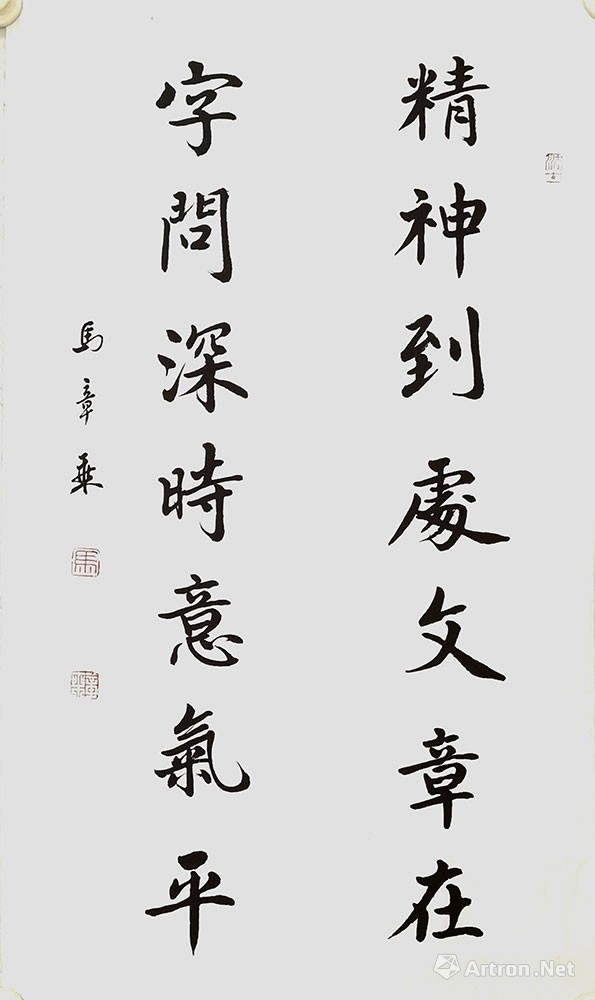 精神到處文章在
字問深時意氣平
馬章乘
馬
Artron.Net